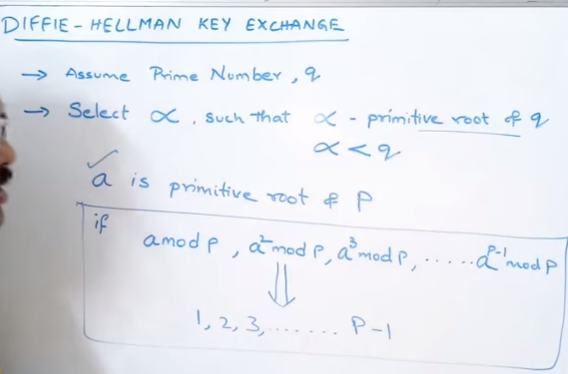 DIFFIE - HELLMAN KEY EXCHANGE
→ Assume Prime Number, q
→ Select α, such that α - primitive root of q
α < q
✓ a is primitive root of P
if
a mod P, a² mod P, a³ mod P, ..... a^P-1 mod P
⇓
1, 2, 3, ....... P-1